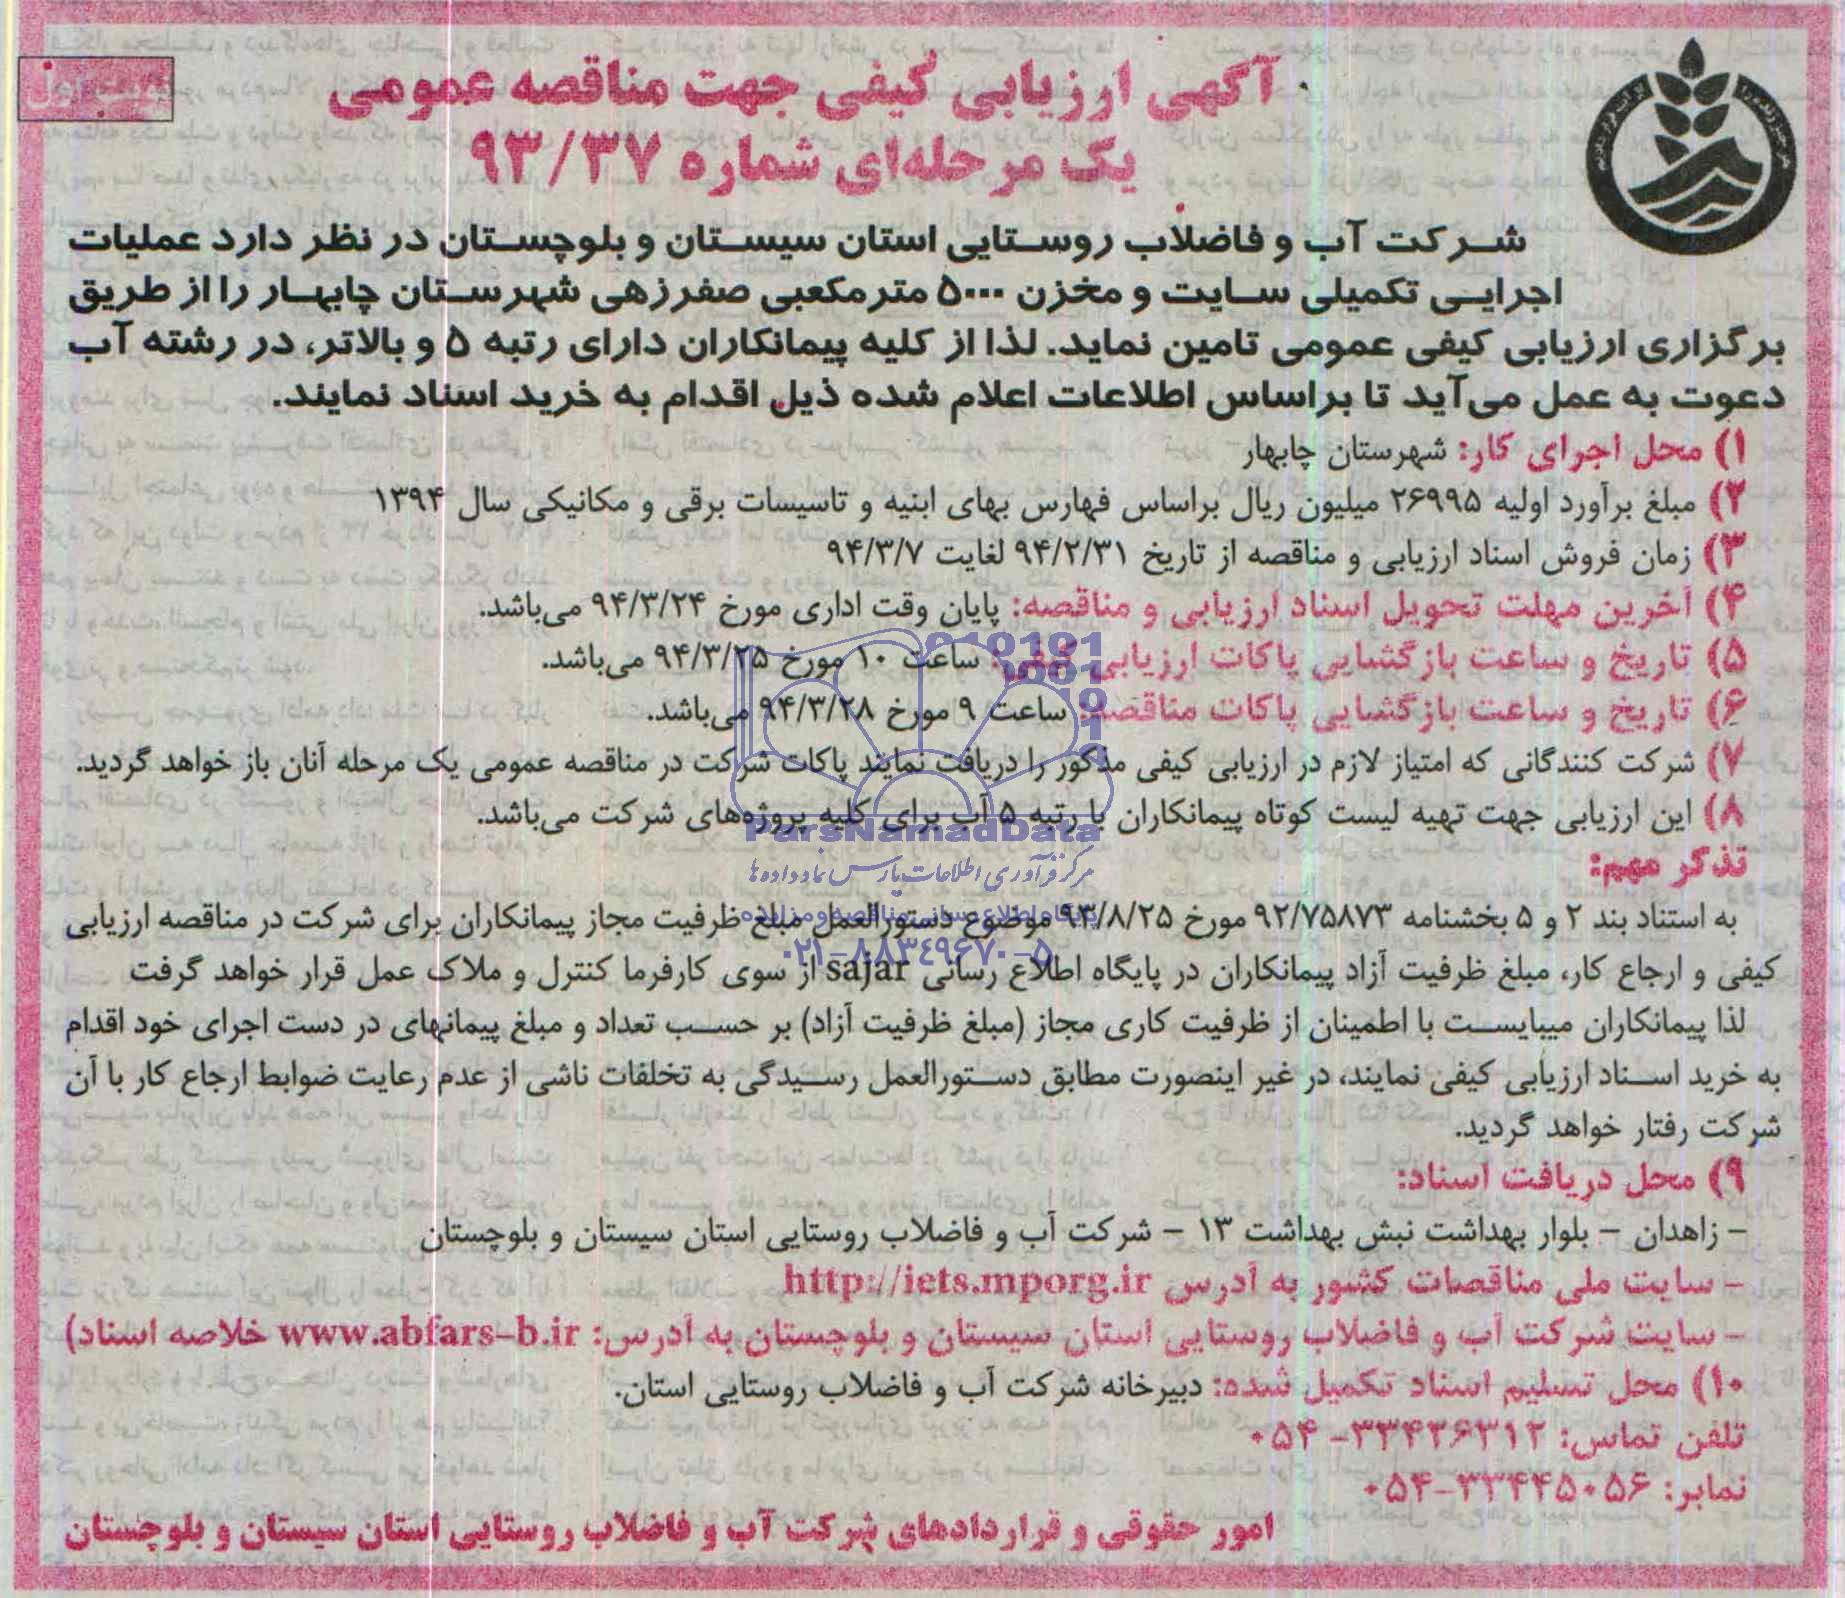 نوبت اول
آگهی ارزیابی کیفی جهت مناقصه عمومی
یک مرحله‌ای شماره ۹۳/۳۷
شرکت آب و فاضلاب روستایی استان سیستان و بلوچستان در نظر دارد عملیات
اجرایی تکمیلی سایت و مخزن ۵۰۰۰ مترمکعبی صفرزهی شهرستان چابهار را از طریق
برگزاری ارزیابی کیفی عمومی تامین نماید. لذا از کلیه پیمانکاران دارای رتبه ۵ و بالاتر، در رشته آب
دعوت به عمل می‌آید تا براساس اطلاعات اعلام شده ذیل اقدام به خرید اسناد نمایند.
۱) محل اجرای کار: شهرستان چابهار
۲) مبلغ برآورد اولیه ۲۶۹۹۵ میلیون ریال براساس فهارس بهای ابنیه و تاسیسات برقی و مکانیکی سال ۱۳۹۴
۳) زمان فروش اسناد ارزیابی و مناقصه از تاریخ ۹۴/۲/۳۱ لغایت ۹۴/۳/۷
۴) آخرین مهلت تحویل اسناد ارزیابی و مناقصه: پایان وقت اداری مورخ ۹۴/۳/۲۴ می‌باشد.
۵) تاریخ و ساعت بازگشایی پاکات ارزیابی کیفی: ساعت ۱۰ مورخ ۹۴/۳/۲۵ می‌باشد.
۶) تاریخ و ساعت بازگشایی پاکات مناقصه: ساعت ۹ مورخ ۹۴/۳/۲۸ می‌باشد.
۷) شرکت کنندگانی که امتیاز لازم در ارزیابی کیفی مذکور را دریافت نمایند پاکات شرکت در مناقصه عمومی یک مرحله آنان باز خواهد گردید.
۸) این ارزیابی جهت تهیه لیست کوتاه پیمانکاران با رتبه ۵ آب برای کلیه پروژه‌های شرکت می‌باشد.
ParsNamadData
مرکز فرآوری اطلاعات پارس نماد داده‌ها
پایگاه اطلاع رسانی مناقصه و مزایده
۰۲۱-۸۸۳۴۹۶۷۰-۵
تذکر مهم:
به استناد بند ۲ و ۵ بخشنامه ۹۲/۷۵۸۷۳ مورخ ۹۳/۸/۲۵ موضوع دستورالعمل مبلغ ظرفیت مجاز پیمانکاران برای شرکت در مناقصه ارزیابی
کیفی و ارجاع کار، مبلغ ظرفیت آزاد پیمانکاران در پایگاه اطلاع رسانی sajar از سوی کارفرما کنترل و ملاک عمل قرار خواهد گرفت
لذا پیمانکاران میبایست با اطمینان از ظرفیت کاری مجاز (مبلغ ظرفیت آزاد) بر حسب تعداد و مبلغ پیمانهای در دست اجرای خود اقدام
به خرید اسناد ارزیابی کیفی نمایند، در غیر اینصورت مطابق دستورالعمل رسیدگی به تخلفات ناشی از عدم رعایت ضوابط ارجاع کار با آن
شرکت رفتار خواهد گردید.
۹) محل دریافت اسناد:
- زاهدان - بلوار بهداشت نبش بهداشت ۱۳ - شرکت آب و فاضلاب روستایی استان سیستان و بلوچستان
- سایت ملی مناقصات کشور به آدرس http://iets.mporg.ir
- سایت شرکت آب و فاضلاب روستایی استان سیستان و بلوچستان به آدرس: www.abfars-b.ir خلاصه اسناد)
۱۰) محل تسلیم اسناد تکمیل شده: دبیرخانه شرکت آب و فاضلاب روستایی استان.
تلفن تماس: ۳۳۴۲۶۳۱۲-۰۵۴
نمابر: ۳۳۴۴۵۰۵۶-۰۵۴
امور حقوقی و قراردادهای شرکت آب و فاضلاب روستایی استان سیستان و بلوچستان